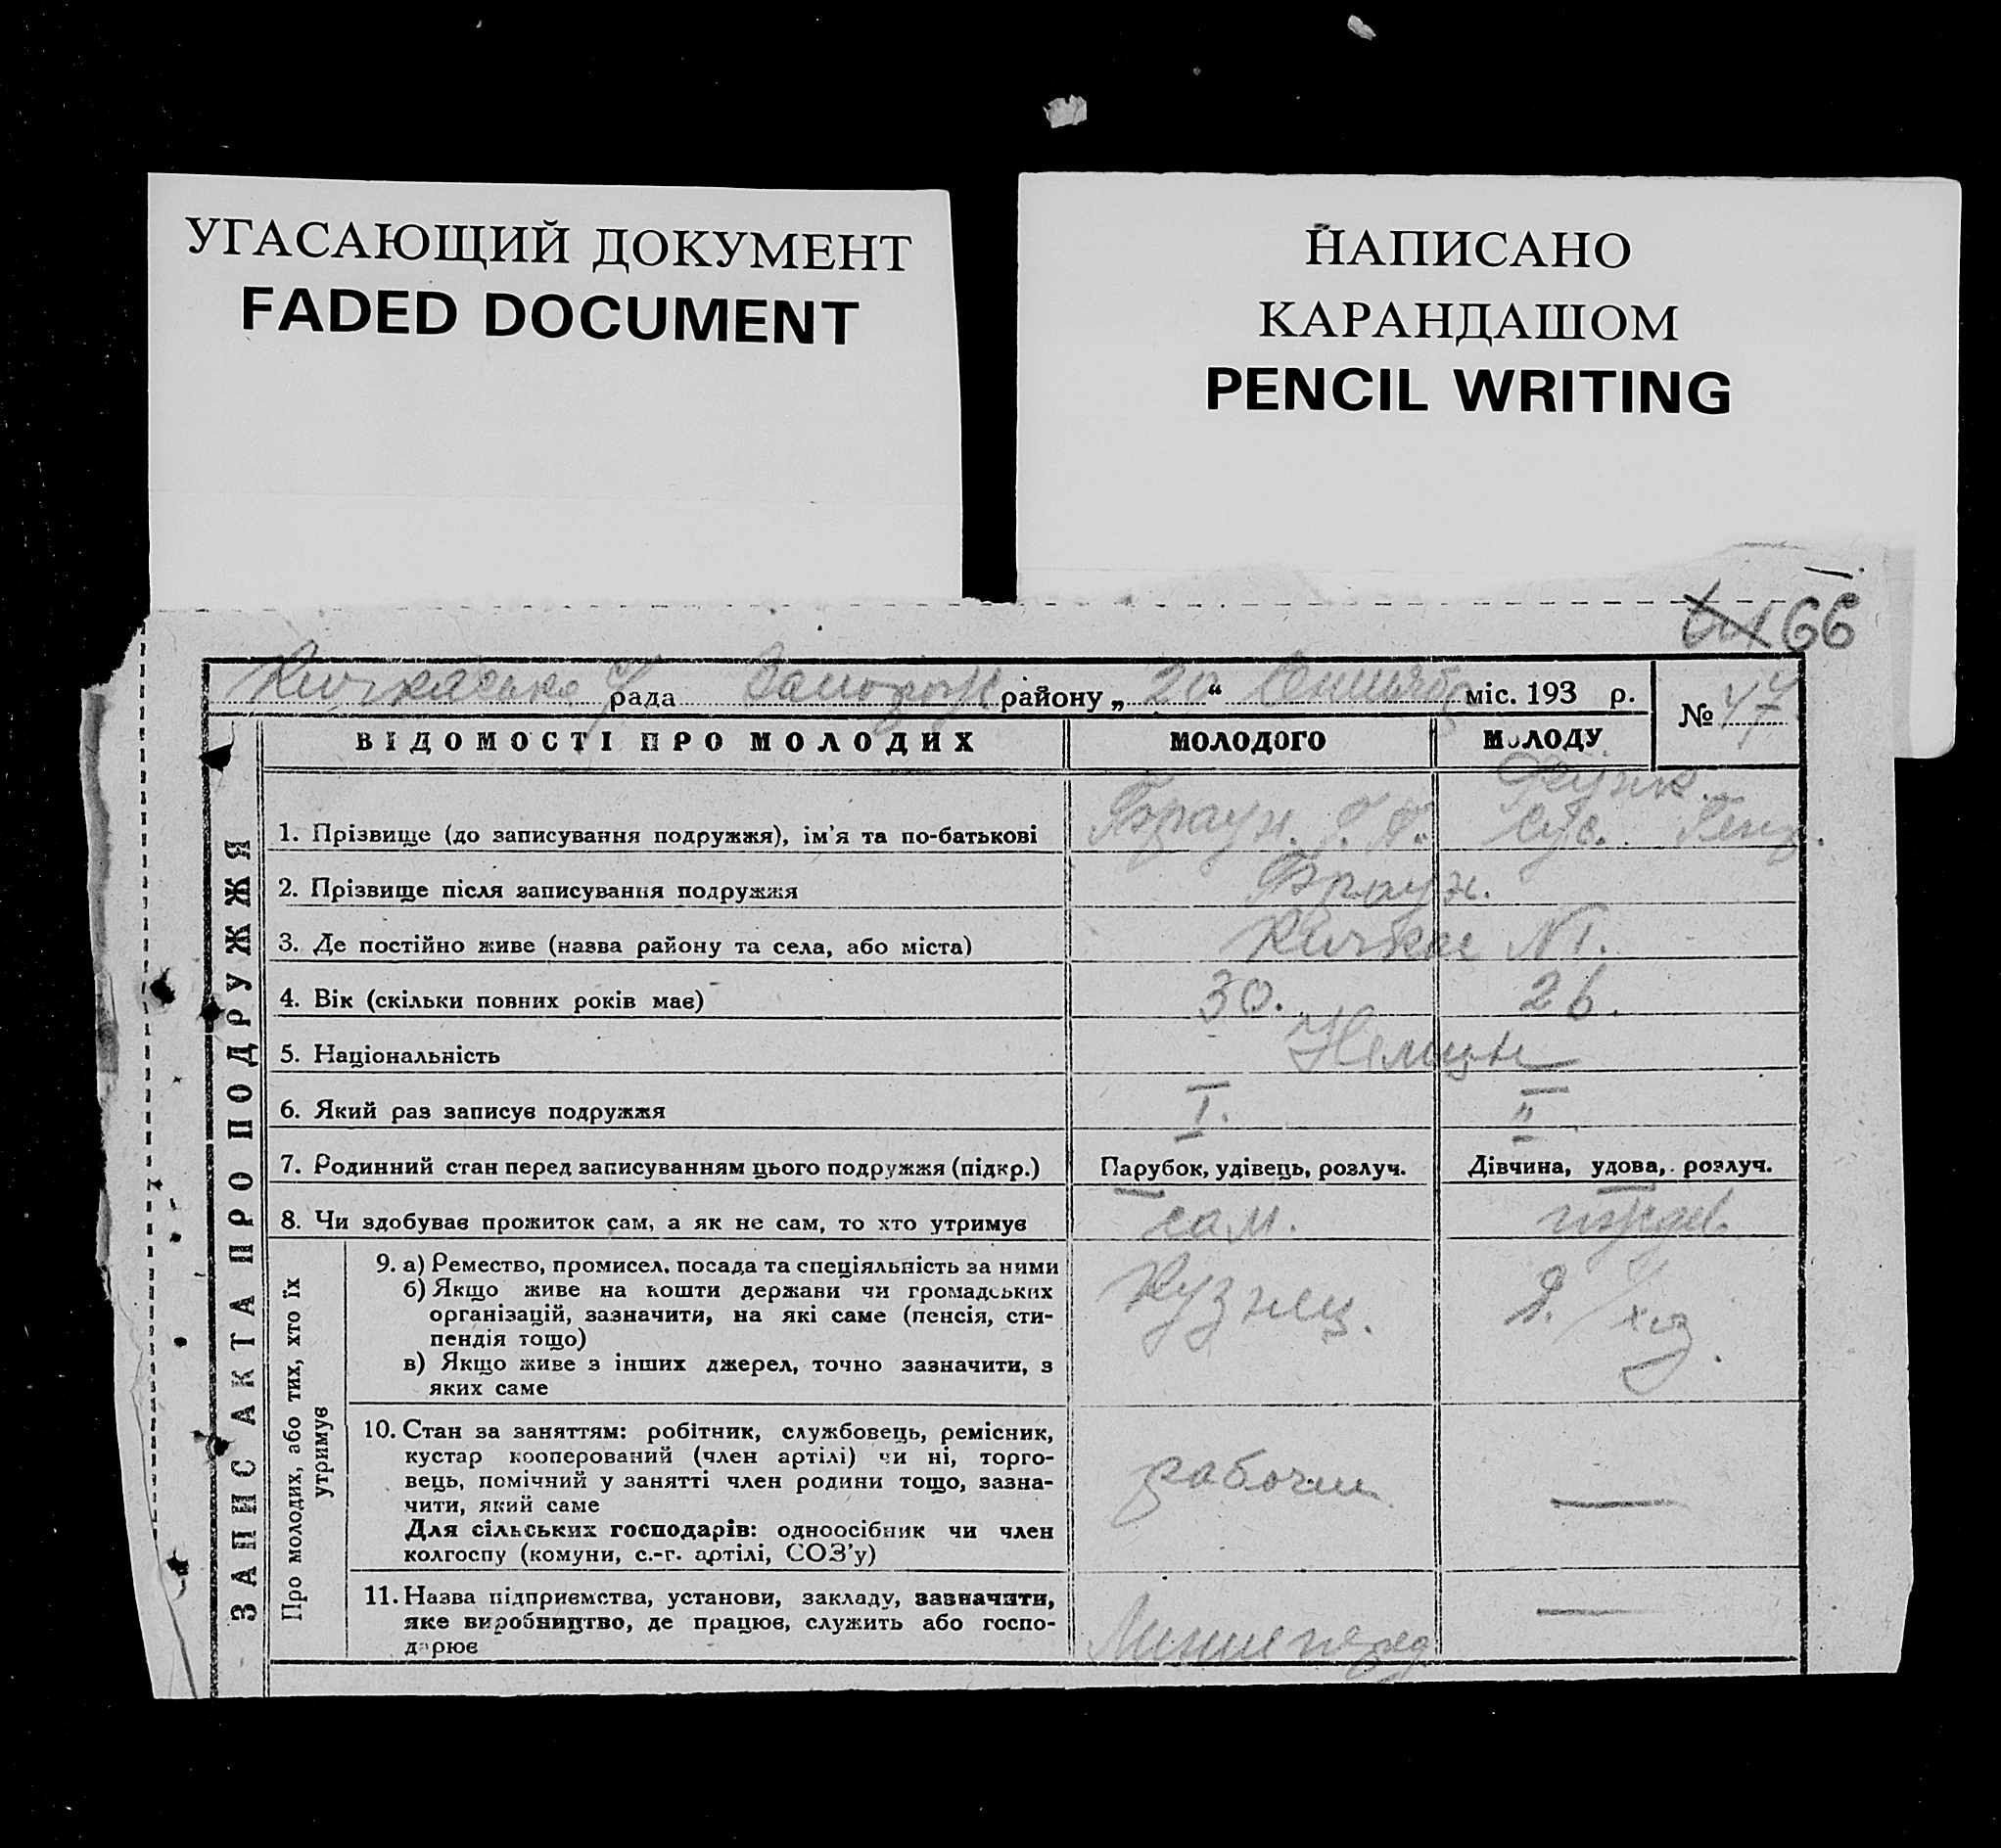 УГАСАЮЩИЙ ДОКУМЕНТ
FADED DOCUMENT
НАПИСАНО
КАРАНДАШОМ
PENCIL WRITING
66
рада Запорож району „ 20 “ міс. 193 р.
№ 47
ВІДОМОСТІ ПРО МОЛОДИХ
МОЛОДОГО
МОЛОДУ
ЗАПИС АКТА ПРО ПОДРУЖЖЯ
1. Прізвище (до записування подружжя), ім’я та по-батькові
Браун. Г. Г.
Генр.
2. Прізвище після записування подружжя
Браун.
3. Де постійно живе (назва району та села, або міста)
Кичкас №1.
4. Вік (скільки повних років має)
30.
26.
5. Національність
Немцы
6. Який раз записує подружжя
I.
II
7. Родинний стан перед записуванням цього подружжя (підкр.)
Парубок, удівець, розлуч.
Дівчина, удова, розлуч.
8. Чи здобував прожиток сам, а як не сам, то хто утримує
сам.
иждив.
Про молодих, або тих, хто їх
утримує
9. а) Ремество, промисел, посада та спеціяльність за ними
б) Якщо живе на кошти держави чи громадських
організацій, зазначити, на які саме (пенсія, сти-
пендія тощо)
в) Якщо живе з інших джерел, точно зазначити, з
яких саме
Кузнец.
Д. хоз.
10. Стан за заняттям: робітник, службовець, ремісник,
кустар кооперований (член артілі) чи ні, торго-
вець, помічний у занятті член родини тощо, зазна-
чити, який саме
Для сільських господарів: одноосібник чи член
колгоспу (комуни, с.-г. артілі, СОЗ’у)
рабочий
11. Назва підприємства, установи, закладу, зазначити,
яке виробництво, де працює, служить або госпо-
дарює